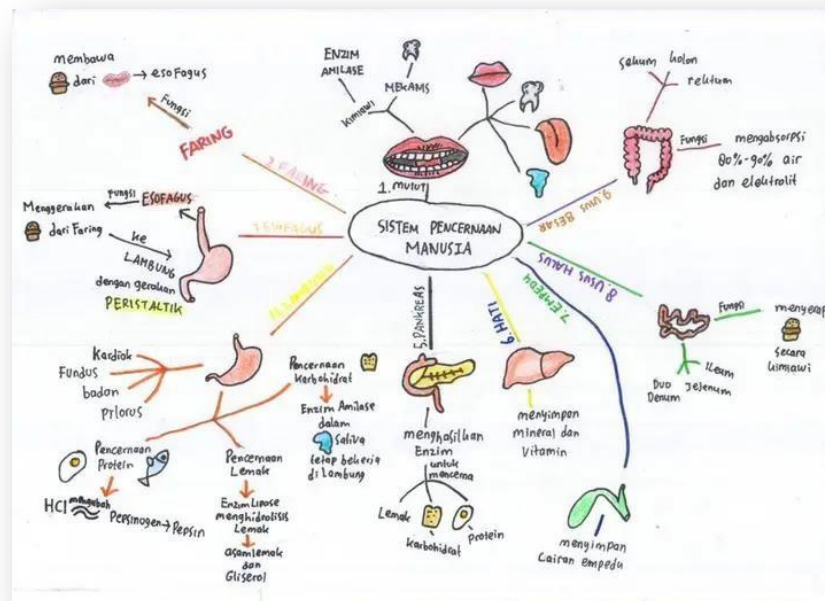 SISTEM PENCERNAAN
MANUSIA
1. mulut
ENZIM
AMILASE
kimiawi
MEKANIS
2. FARING
FARING
Fungsi
membawa
dari
esofagus
3. ESOFAGUS
ESOFAGUS
Fungsi
Menggerakan
dari Faring
ke
LAMBUNG
dengan gerakan
PERISTALTIK
4. LAMBUNG
Kardiak
Fundus
badan
Pilorus
Pencernaan
Protein
HCl mengubah
Pepsinogen → Pepsin
Pencernaan
Lemak
Enzim Lipose
menghidrolisis
Lemak
asam lemak
dan
Gliserol
Pencernaan
Karbohidrat
Enzim Amilase
dalam
Saliva
tetap bekerja
di Lambung
5. PANKREAS
menghasilkan
Enzim
untuk
mencerna
Lemak
karbohidrat
protein
6. HATI
menyimpan
mineral dan
Vitamin
7. EMPEDU
menyimpan
Cairan empedu
8. USUS HALUS
Fungsi
menyerap
secara
kimiawi
Duo
Denum
Jejenum
Ileum
9. USUS BESAR
sekum
kolon
rektum
Fungsi
mengabsorpsi
80%-90% air
dan elektrolit